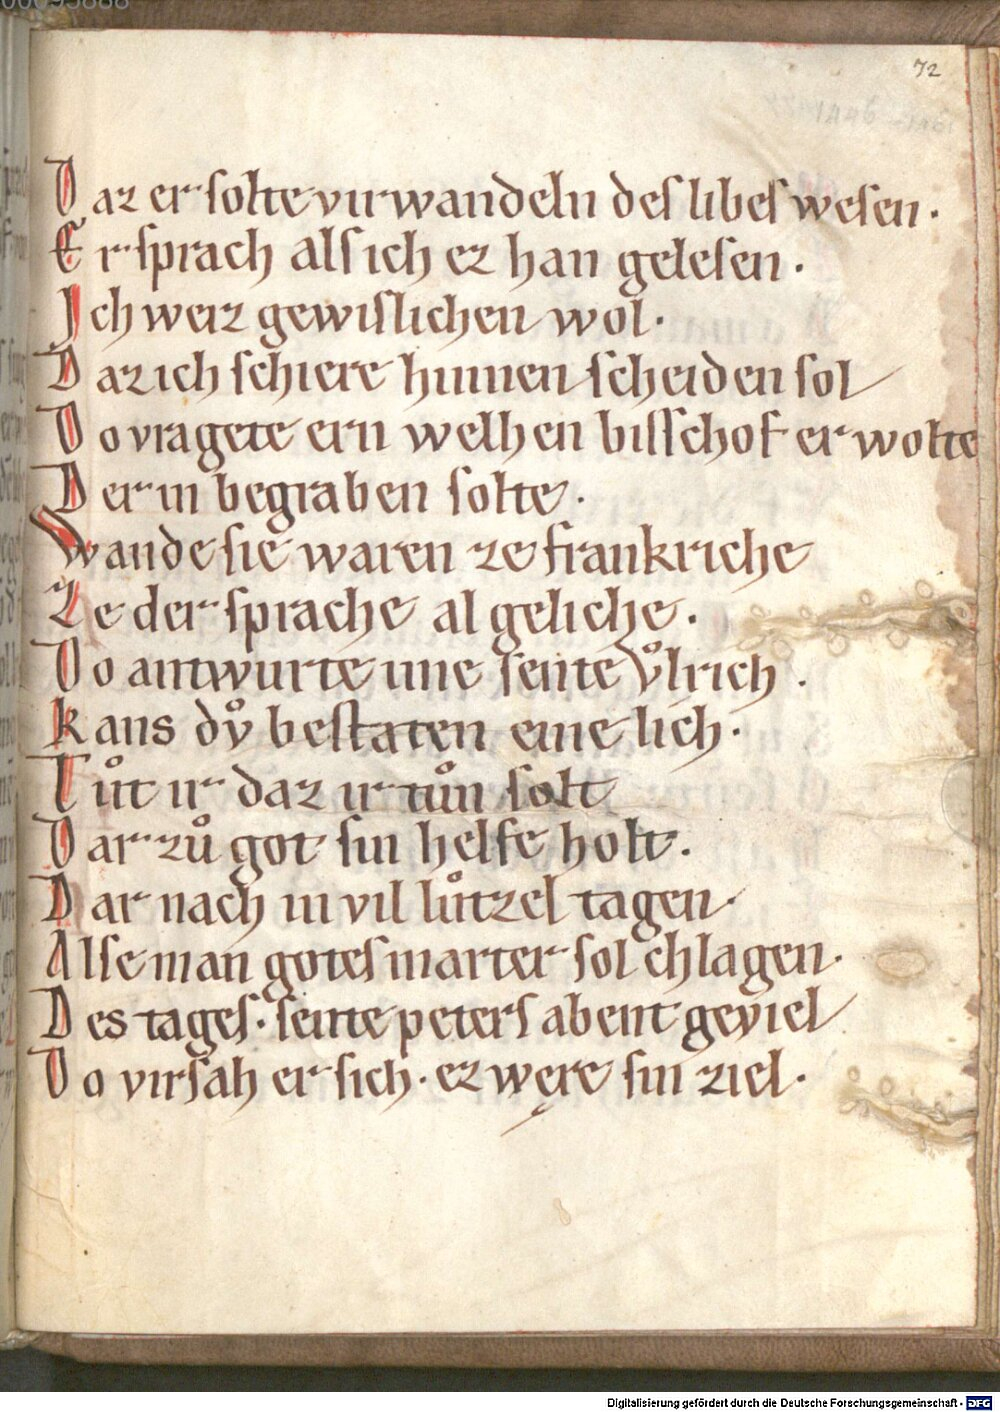 00095888
72
Daz er ſolte virwandeln deſ libeſ weſen.
Er ſprach alſ ich ez han geleſen.
Ich weiz gewiſlichen wol.
Daz ich ſchiere hinnen ſcheiden ſol
Do vragete ern welhen biſſchof er wolte
Der in begraben ſolte.
Wande ſie waren ze frankriche
Ze der ſprache al geliche.
Do antwurte ime ſente vͦlrich.
kans dvͦ beſtaten eine lich.
Tuͦt ir daz ir tuͦn ſolt
Dar zuͦ got ſin helfe holt.
Dar nach in vil luͦtzel tagen.
Alſe man goteſ marter ſol chlagen.
Des tageſ. ſeinte peterſ abent geviel
Do virſah er ſich. ez węre ſin ziel.
Digitalisierung gefördert durch die Deutsche Forschungsgemeinschaft - DFG